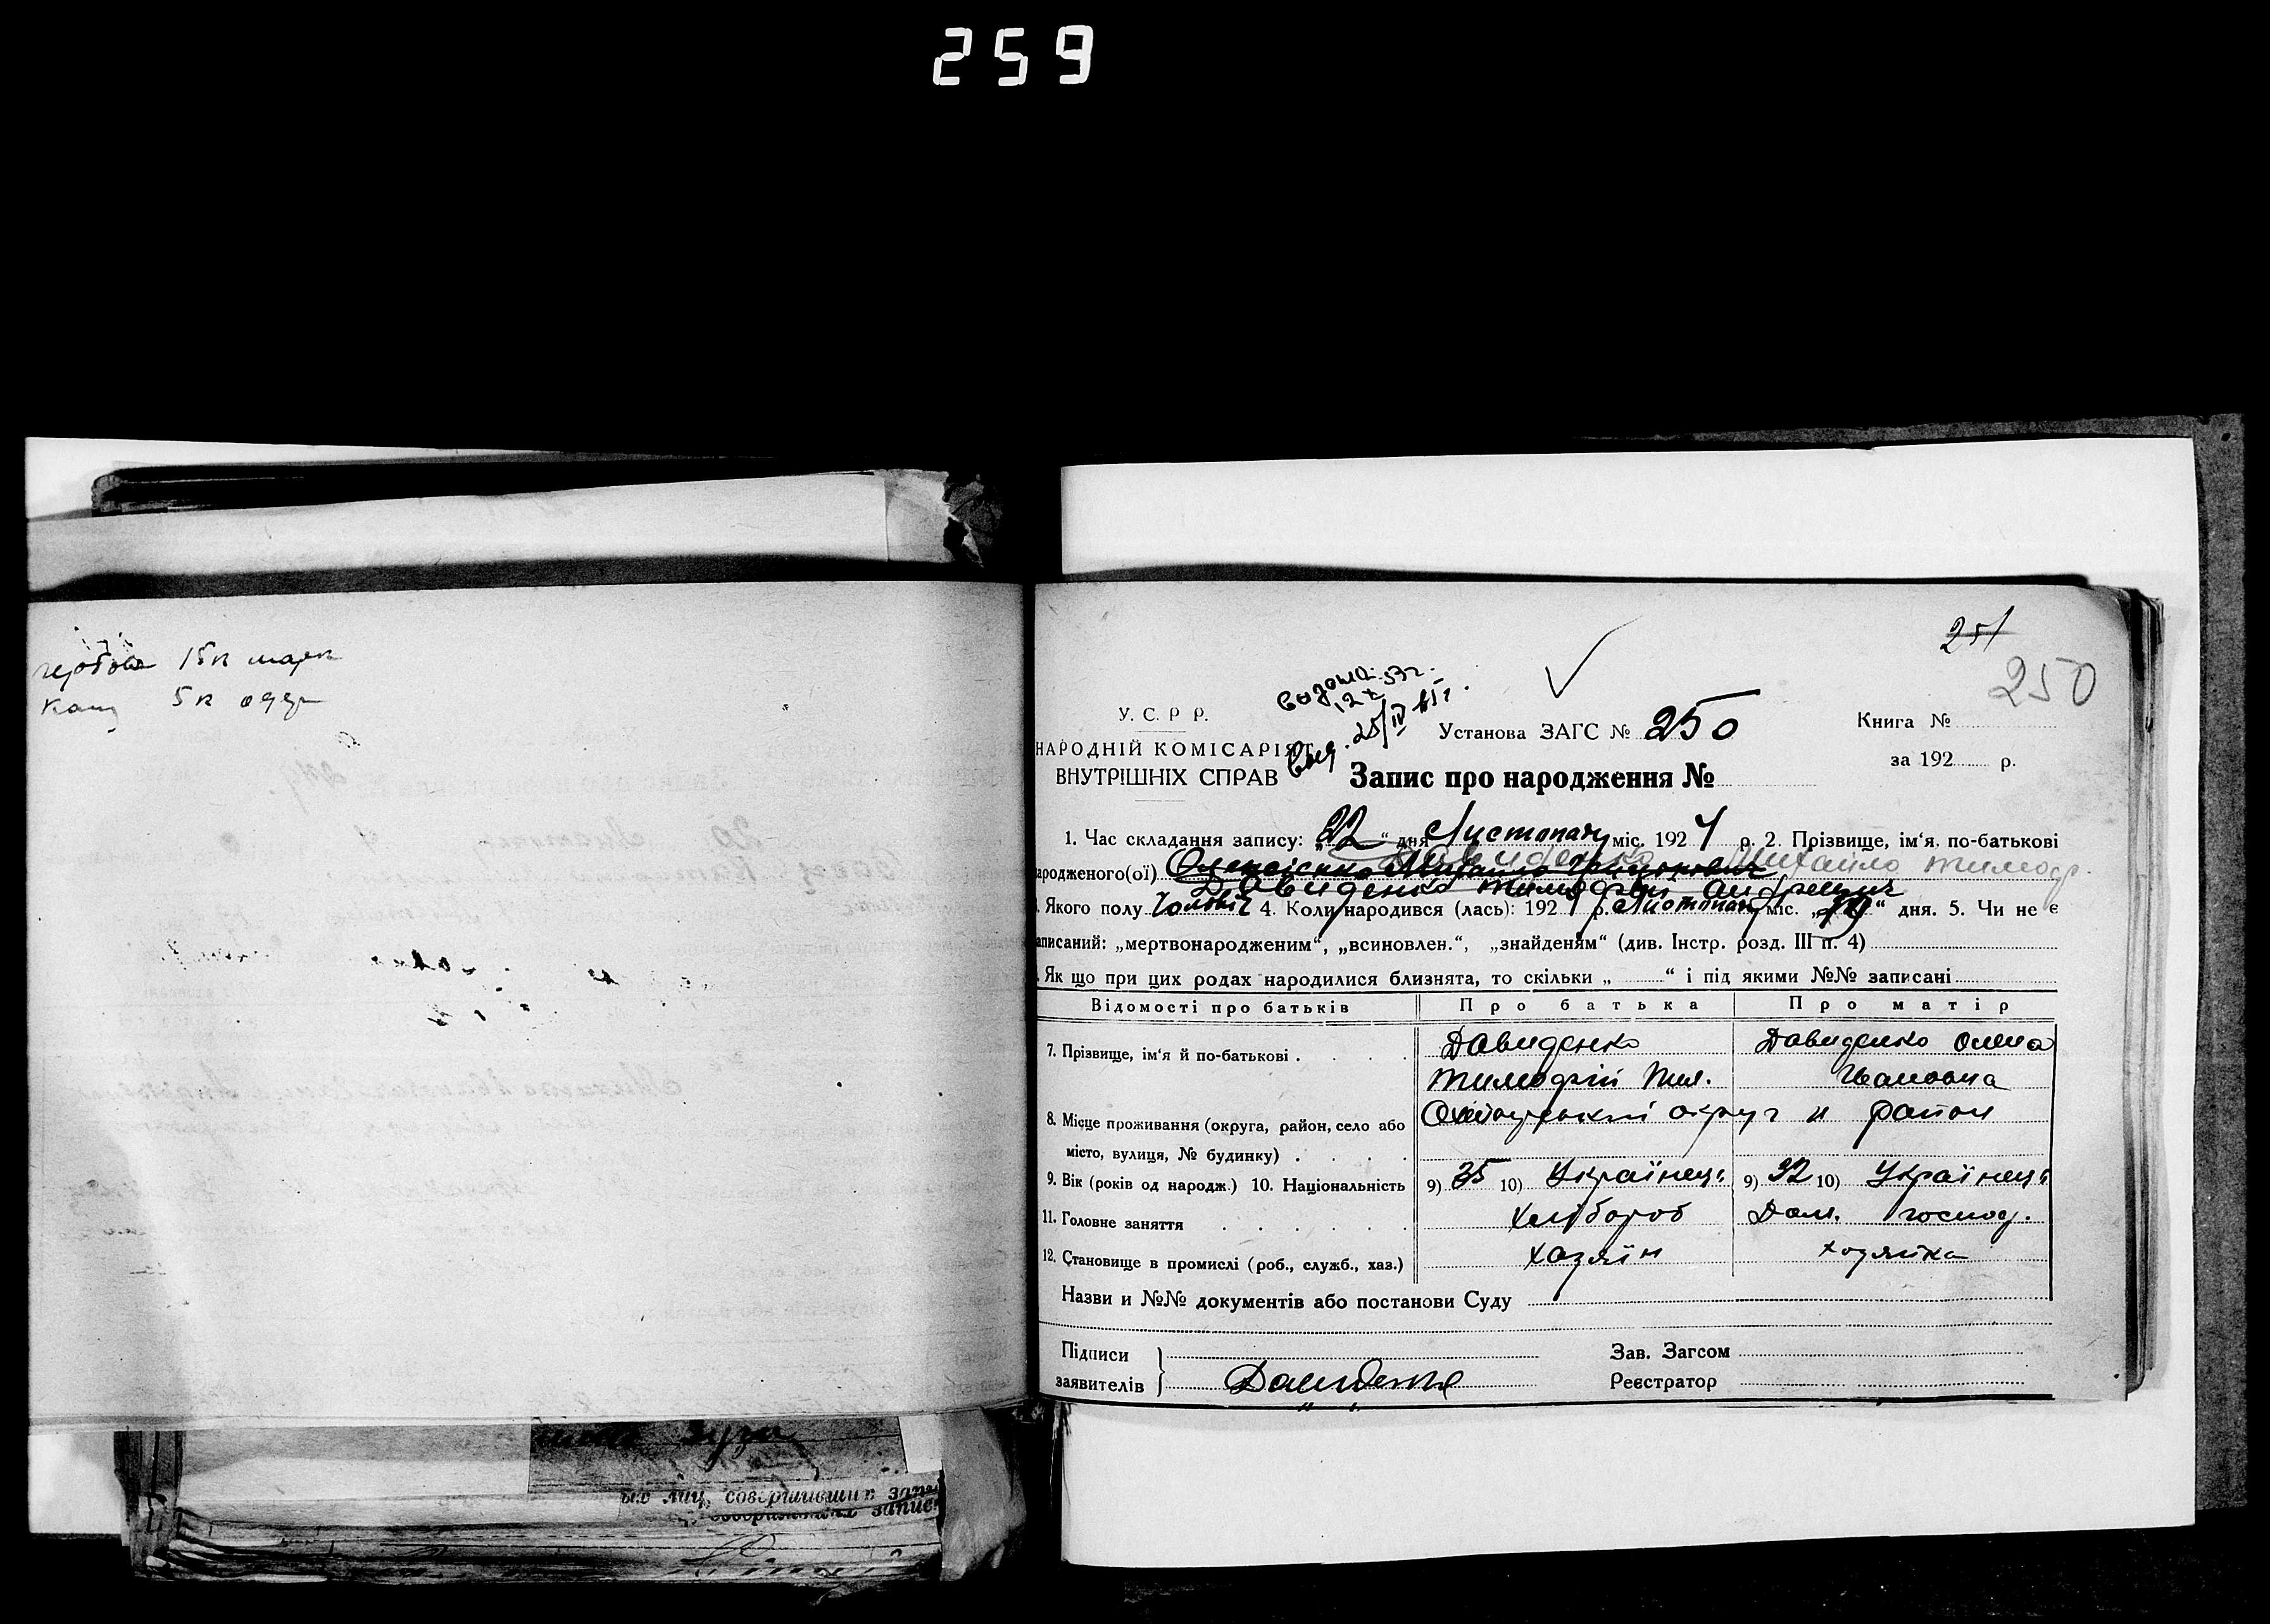 259
15к марк
5к
251
250
У. С. Р. Р.
НАРОДНІЙ КОМІСАРІЯТ
ВНУТРІШНІХ СПРАВ
25/IV
Установа ЗАГС № 250
Книга №
за 192 р.
Запис про народження №
1. Час складання запису: „22“ дня Листопад міс. 1924 р. 2. Прізвище, ім'я, по-батькові
Давиденко Михайло Тимоф.
ародженого(ої) Олексієнко Михайло
Давиденко Тимофій
Якого полу Чоловіч 4. Коли народився (лась): 1924 р. Листопад міс. „19“ дня. 5. Чи не є
аписаний: „мертвонародженим“, „всиновлен.“, „знайденям“ (див. Інстр. розд. III п. 4)
Як що при цих родах народилися близнята, то скільки „ “ і під якими №№ записані
Відомості про батьків Про батька Про матір
7. Прізвище, ім'я й по-батькові . . . . Давиденко Давиденко Олена
Тимофій Пил. Івановна
8. Місце проживання (округа, район, село або Охтирський округ и район
місто, вулиця, № будинку) . . . .
9. Вік (років од народж.) 10. Національність 9) 35 10) Українець 9) 32 10) Українець
11. Головне заняття . . . . . . Хлібороб Дом. господ.
12. Становище в промислі (роб., служб., хаз.) хазяїн хозяйка
Назви и №№ документів або постанови Суду
Підписи
заявителів Давиденко
Зав. Загсом
Реєстратор
лиц, совершивших запи